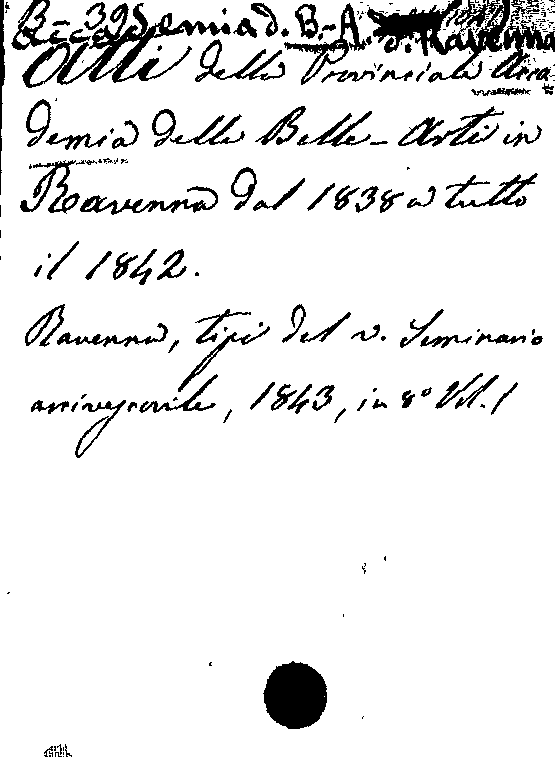 B - 395
Accademia d. B.-A. d. Ravenna
Atti della Provinciale Acca
demia delle Belle-Arti in
Ravenna dal 1838 a tutto
il 1842.
Ravenna, tipi del v. Seminario
arcivescovile, 1843, in 8° Vol. 1